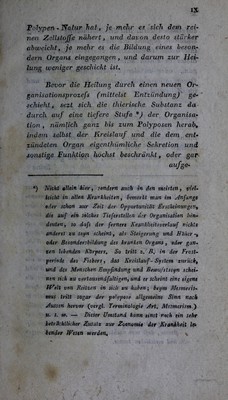 IX
Polypen-Natur hat, je mehr es sich dem rei-
nen Zellstoffe nähert, und davon desto stärker
abweicht, je mehr es die Bildung eines beson-
dern Organs eingegangen, und darum zur Hei-
lung weniger geschickt ist.
Bevor die Heilung durch einen neuen Or-
ganisationsprozeß (mittelst Entzündung) ge-
schieht, sezt sich die thierische Substanz da
durch auf eine tiefere Stufe *) der Organisa-
tion, nämlich ganz bis zum Polyposen herab,
indem selbst der Kreislauf und die dem ent-
zündeten Organ eigenthümliche Sekretion und
sonstige Funktion höchst beschränkt, oder gar
aufge-
*) Nicht allein hier, sondern auch in den meisten, viel-
leicht in allen Krankheiten, bemerkt man im Anfange
oder schon zur Zeit der Opportunität Erscheinungen,
die auf ein solches Tieferstellen der Organisation hin-
deuten, so daß der fernere Krankheitsverlauf nichts
anderst zu seyn scheint, als Steigerung und Höher-,
oder Besondersbildung des kranken Organs, oder gan-
zen lebenden Körpers. So tritt z. B. in der Frost-
periode des Fiebers, das Kreislauf-System zurück,
und des Menschen Empfindung und Bewustseyn schei-
nen sich zu verhaunsmässigen, und er scheint eine eigene
Welt von Reitzen in sich zu haben; beym Mesmeris-
mus tritt sogar der polypose allgemeine Sinn nach
Aussen hervor (vergl. Terminologie Art. Mesmerism.)
u. s. w. — Dieser Umstand kann einst noch ein sehr
beträchtlicher Zusatz zur Zoonomie der Krankheit le-
bender Wesen werden.